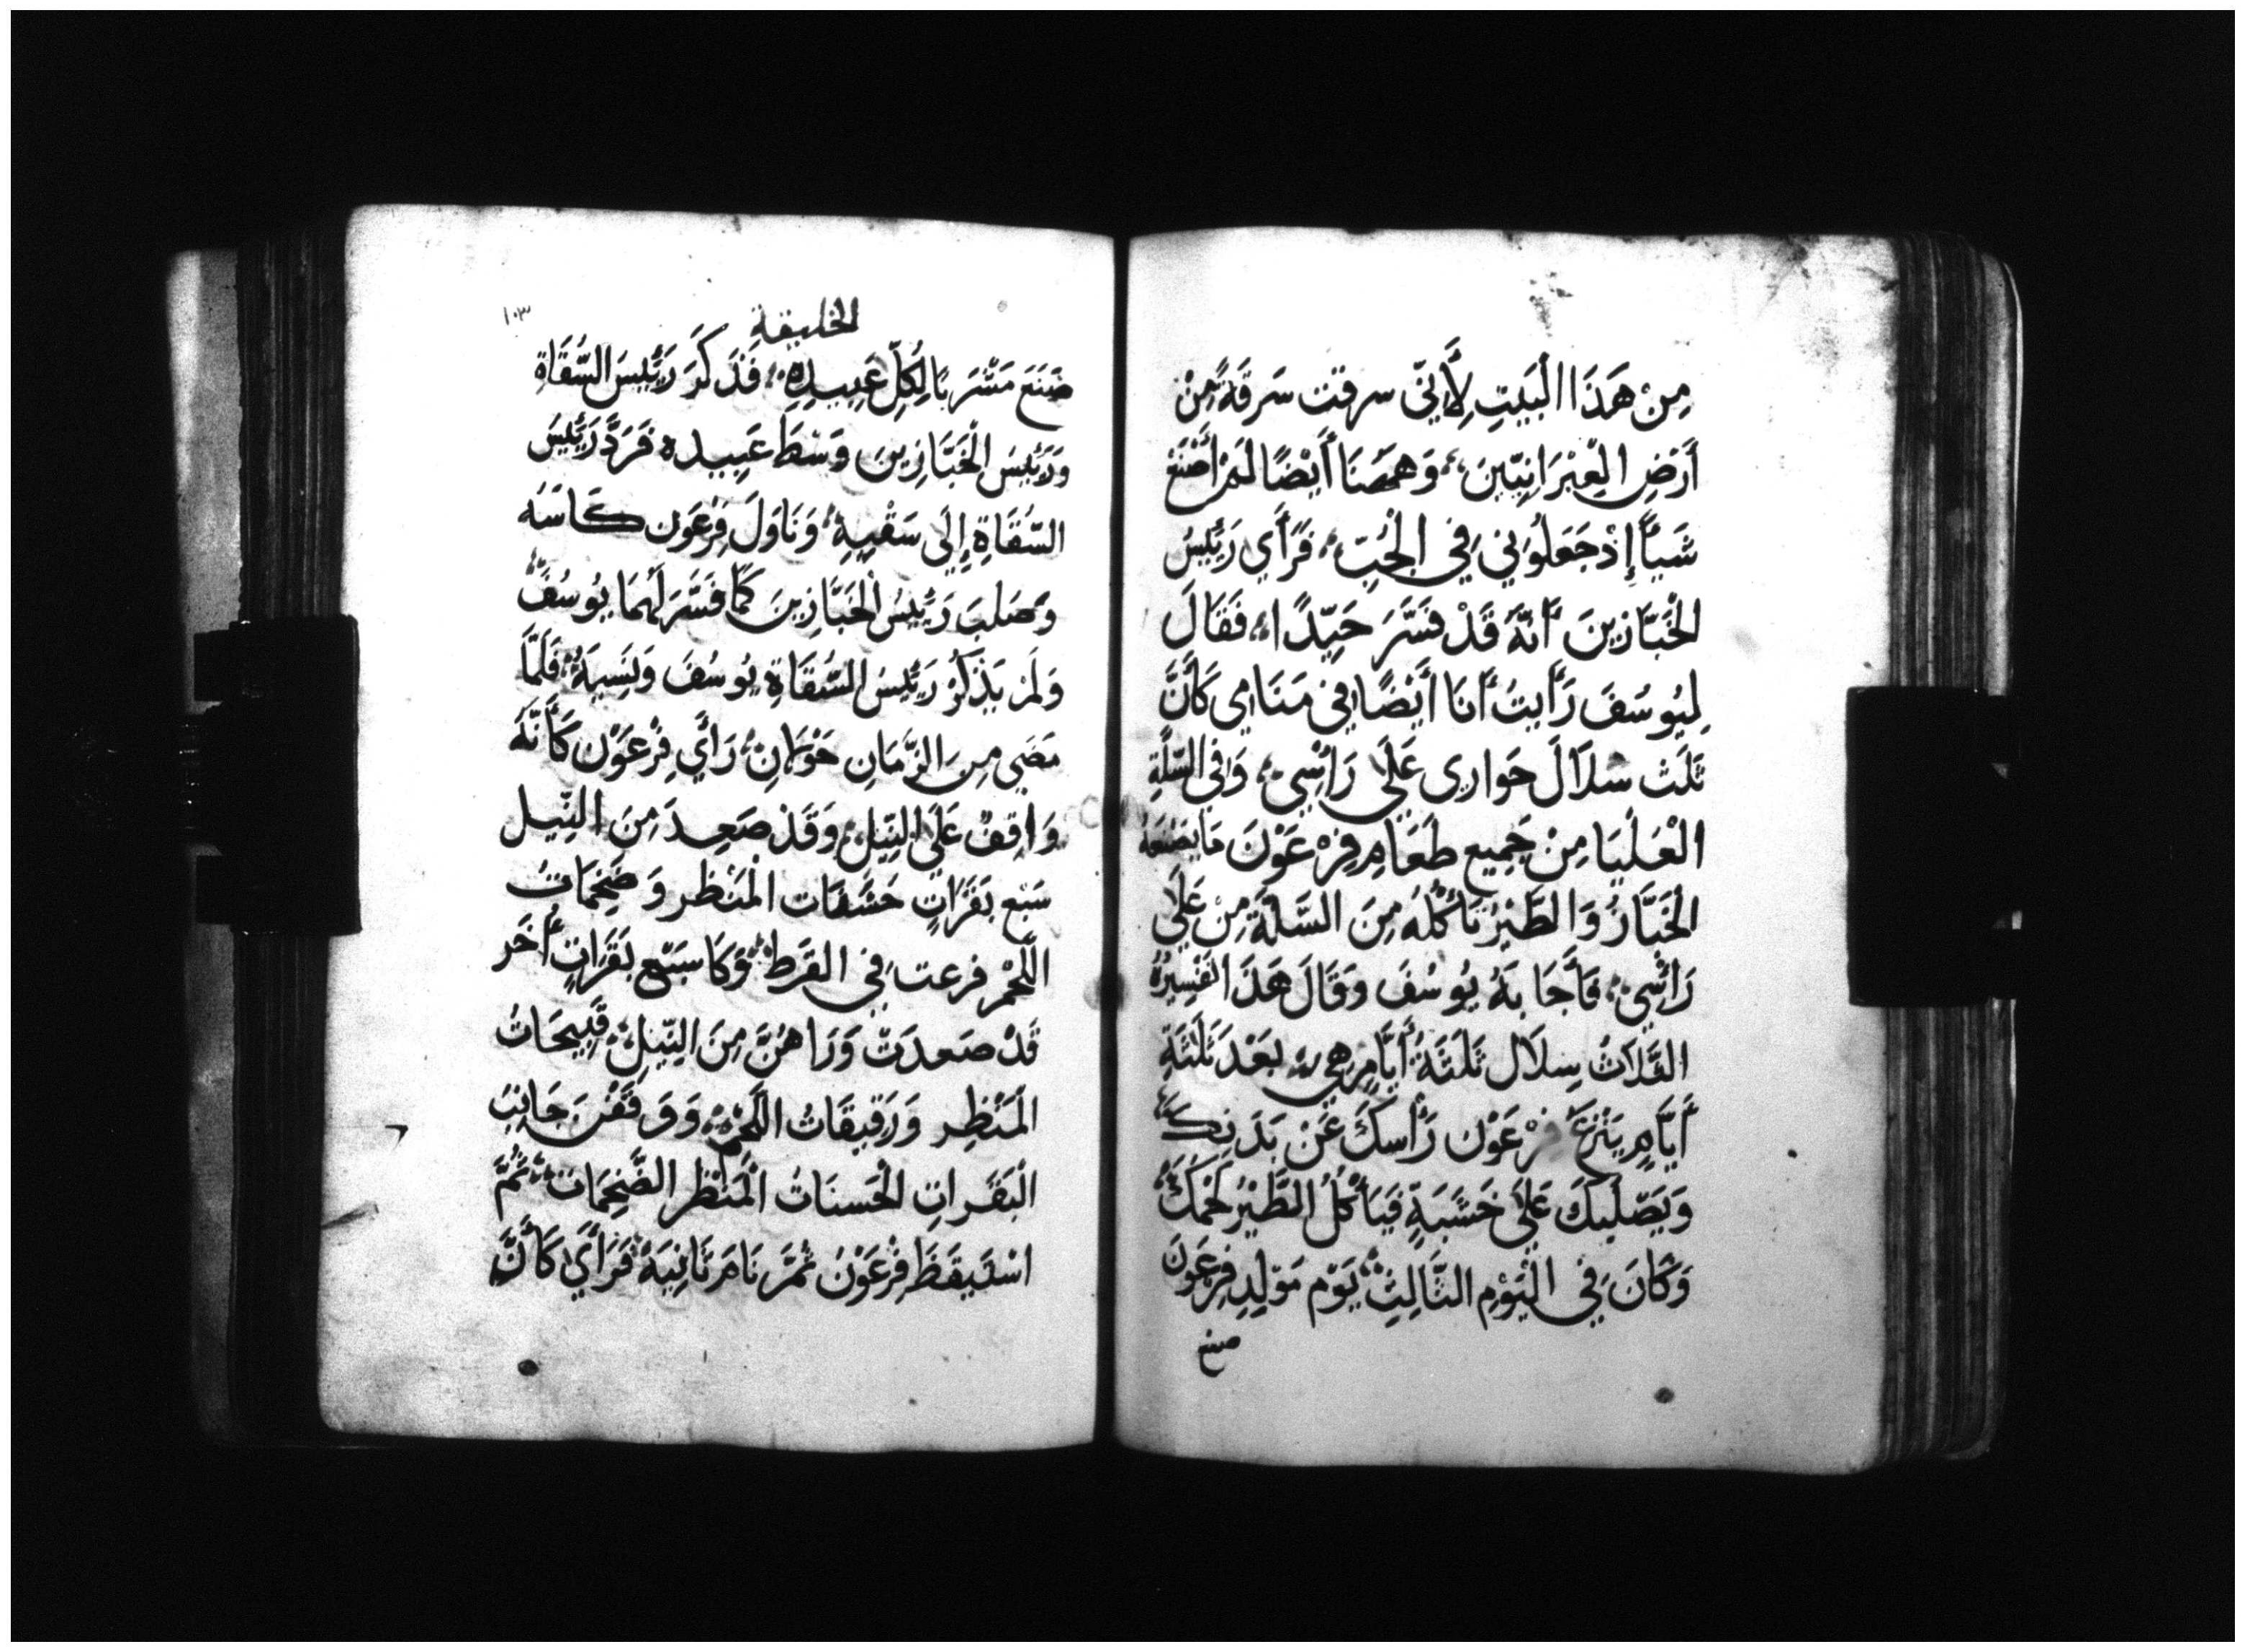 مِنْ هَذَا الْبَيتِ لِأَنِّي سرقت سَرقَةً مِنْ
أَرْضِ الْعِبْرَانِيِّينَ، وَهَهُنَا أَيْضًا لَمْ أَصْنَعْ
شَيأً إِذْ جَعَلُونِي فِي الْجُبِّ، فَرَأَي رَئِيسُ
الْخَبَّازِينَ أَنَّهُ قَدْ فَسَّرَ جَيِّدًا، فَقَالَ
لِيُوسُفَ رَأَيتُ أَنَا أَيْضًا فِي مَنَامِي كَأَنَّ
ثَلَث سلَالَ حَوارى عَلَي رَأْسِي، وَفِي السَّلَّةِ
الْعُلْيَا مِنْ جَمِيعِ طَعَامِ فِرْعَوْنَ مَا يَصْنَعُهُ
الْخَبَّازُ وَالطَّيْرُ تَأْكُلُهُ مِنَ السَّلَّةِ مِنْ عَلَي
رَأْسِي، فَأَجَابَهُ يُوسُفَ وَقَالَ هَذَا تَفْسِيرُهُ
الثَّلَاثُ سِلَال ثَلَثَةُ أَيَّامٍ هِي، بَعْدَ ثَلَثَةِ
أَيَّامٍ يَنْزعُ فِرْعَوْن رَأْسَكَ عَنْ بَدَنِكَ
وَيَصْلِبكَ عَلَي خَشَبَةٍ فَيَأْكُلُ الطَّيْرُ لَحْمَكَ،
وَكَانَ فِي الْيَوْمِ الثَّالِثِ، يَوْم مَوْلِدِ فِرْعَوْنَ
صنع
الخليقة
١٠٣
صَنَعَ مَشْرَبًا لِكُلِّ عَبِيدِهِ، فَذَكَرَ رَئِيسَ السُّقَاةِ
وَرَئِيسَ الْخَبَّازِينَ وَسْطَ عَبِيده فَرَدَّ رَئِيسَ
السُّقَاةِ إِلَى سَقْيِهِ، وَنَاوَلَ فِرْعَوْن كَاسَهُ
وَصَلَبَ رَئِيسُ الْخَبَّازِينَ كَمَا فَسَّرَ لَهُمَا يُوسُفُ،
وَلَمْ يَذْكُرْ رَئِيسُ السُّقَاةِ يُوسُفَ وَنَسِيَهُ، فَلَمَّا
مَضَي مِنَ الزَّمَانِ حَوْلَانِ، رَأَي فِرْعَوْن كَأَنَّهُ
وَاقِفٌ عَلَي النِّيلِ، وَقَدْ صَعِدَ مِنَ النِّيل
سَبْع بَقَرَاتٍ حَسَنَات الْمَنْظَر وَضَخِمَاتُ
اللَّحْمِ فرعت فِي القَرط، وَكَا سَبْع بَقَرَاتٍ أُخَر
قَدْ صَعدَتْ وَرَاهُنَّ مِنَ النِّيلِ، قَبِيحَاتُ
الْمَنْظَرِ وَرَقِيقَاتُ اللَّحْمِ، وَوَقَفْنَ جَانِبَ
الْبَقَرَاتِ الْحَسنَاتُ الْمَنْظَر الضَّخِمَات، ثُمَّ
اسْتَيقَظَ فِرْعَوْنُ ثُمَّ نَامَ ثَانِيَةً، فَرَأَي كَأَنَّ